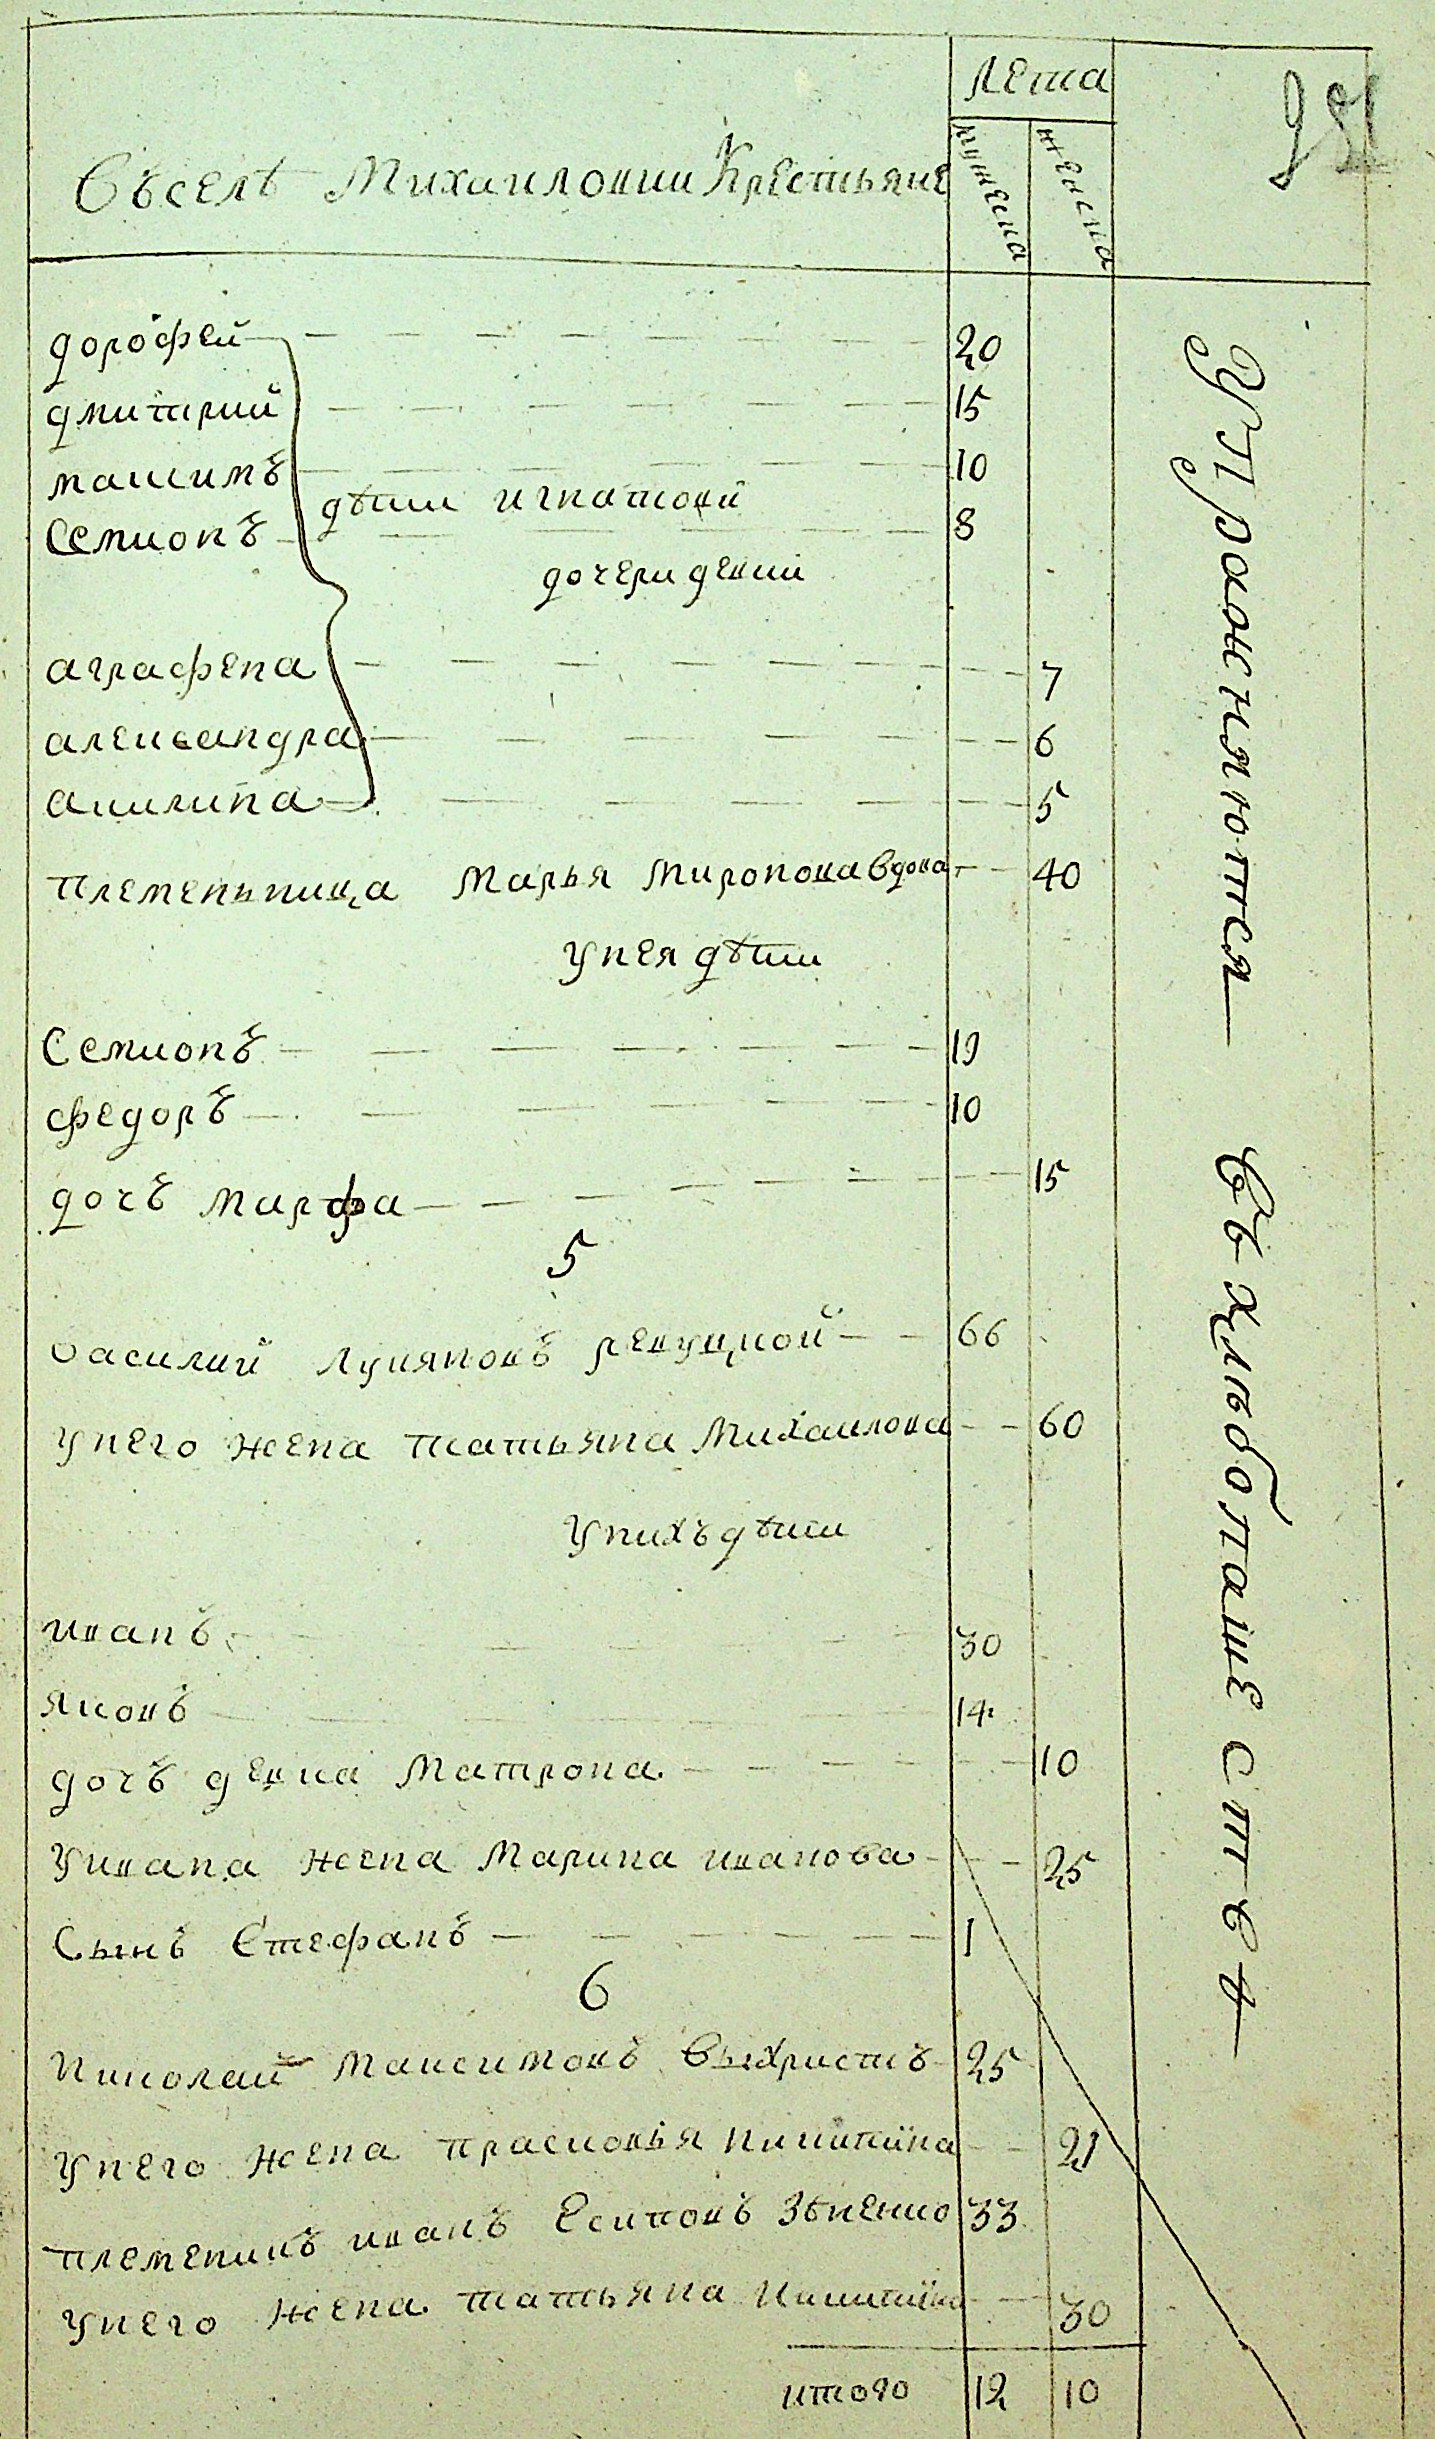 лета
Въселѣ Михаиловки Крестьяне
мужеска
женска
дорофей 20
дмитрий 15
максимъ 10
дѣти игнатови
Семионъ 8
дочери девки
аграфена 7
александра 6
акилина 5
племеньница Марья миронова вдова 40
унея дѣти
Семионъ 19
федоръ 10
дочъ марфа 15
5
василий лукяновъ ревуцкой 66
унего жена татьяна Михаилова 60
унихъ дѣти
иванъ 30
яковъ 14
дочъ девка матрона 10
уивана жена Марина иванова 25
Сынъ Стефанъ 1
6
николай максимовъ выхристъ 25
унего жена прасковья никитина 21
племеникъ иванъ Есиповъ Зѣненко 33
унего жена татьяна никитина 30
итого 12 10
Упражняются въ хлѣбопашестве